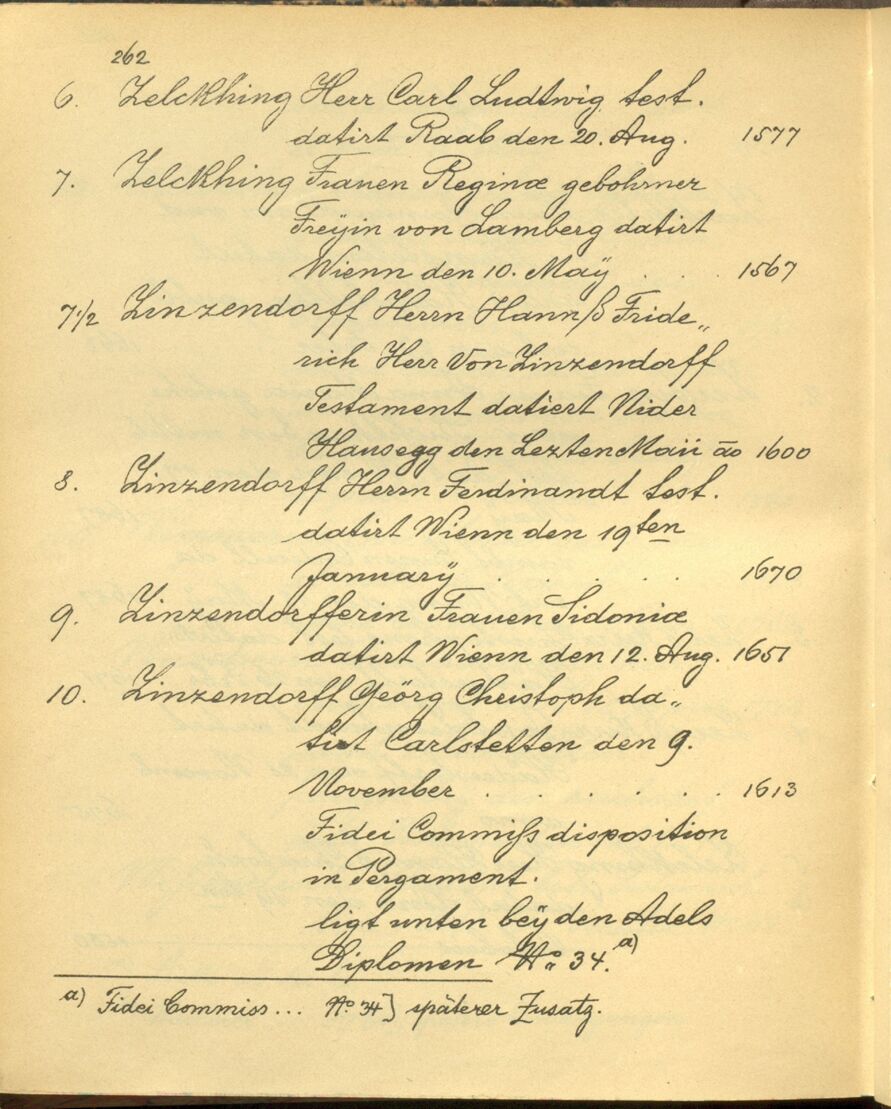 262
6. Zelckhing Herr Carl Ludtwig test.
datirt Raab den 20. Aug. 1577
7. Zelckhing Frauen Reginæ gebohrner
Freÿin von Lamberg datirt
Wienn den 10. Maÿ . . . 1567
7 1/2 Zinzendorff Herrn Hannß Fride„
rich Herr Von Zinzendorff
Testament datiert Nider
Hausegg den Lezten Maii āo 1600
8. Zinzendorff Herrn Ferdinandt test.
datirt Wienn den 19ten
Januarÿ . . . . . 1670
9. Zinzendorfferin Frauen Sidoniæ
datirt Wienn den 12. Aug. 1651
10. Zinzendorff Geörg Christoph da„
tirt Carlstetten den 9.
November . . . . . . 1613
Fidei Commiss disposition
in Pergament.
ligt unten beÿ den Adels
Diplomen No. 34. a)
a) Fidei Commiss... No. 34] späterer Zusatz.